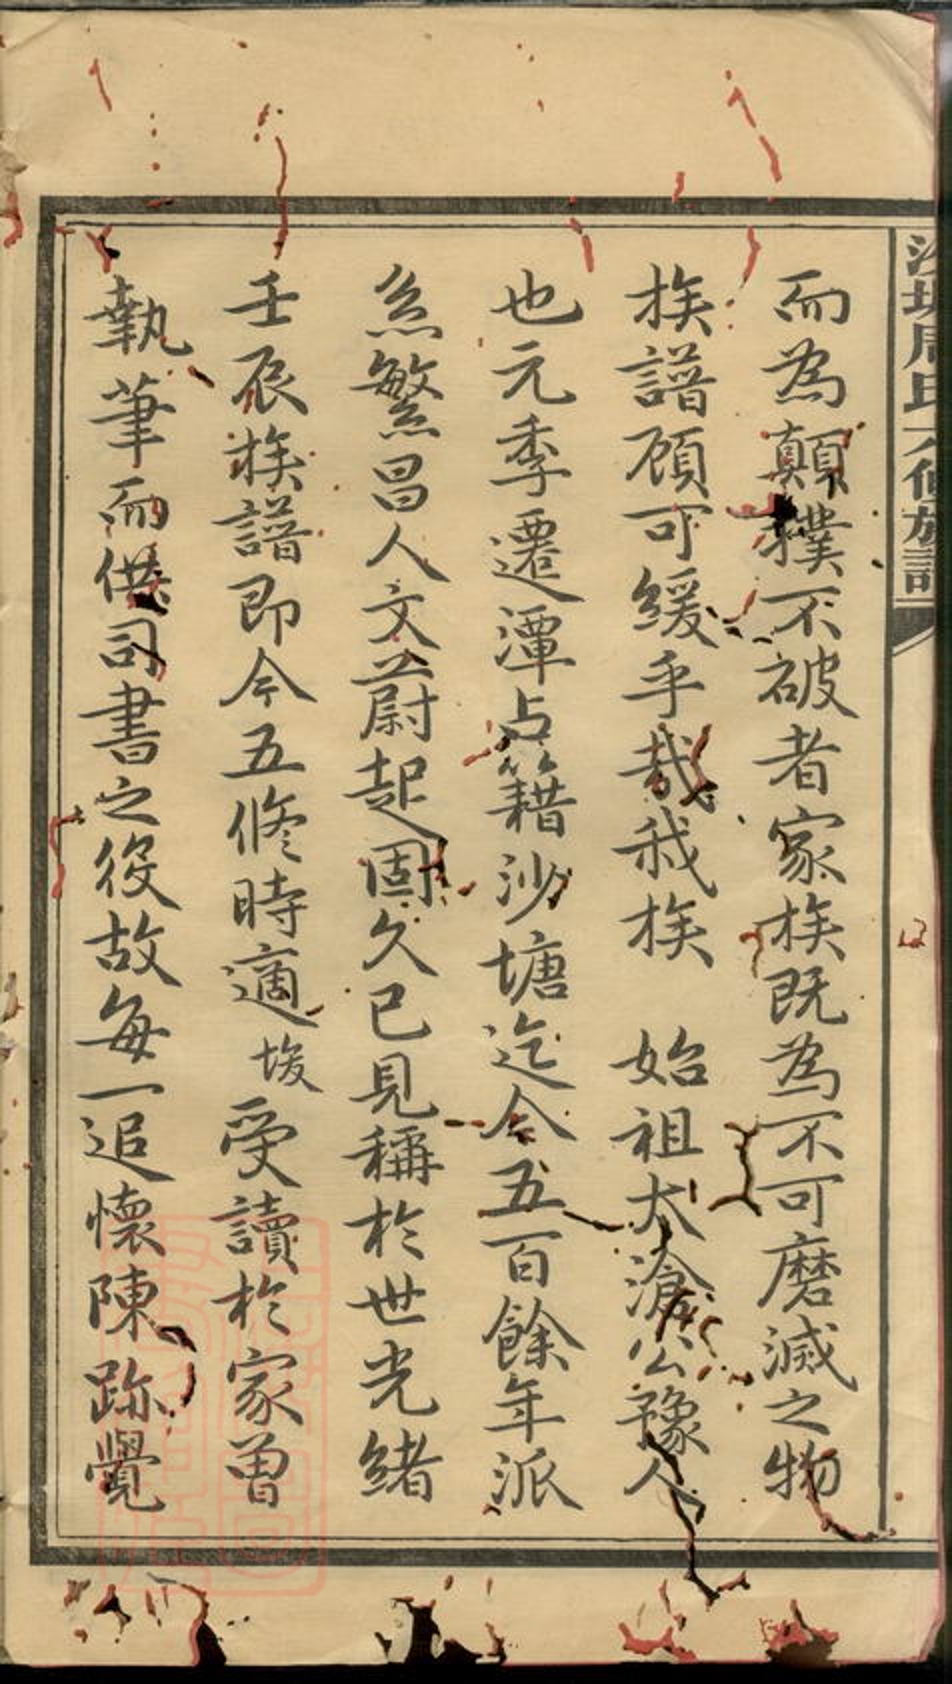 沙塘周氏六修族譜
而為顛撲不破者家族既為不可磨滅之物
族譜顧可緩乎哉我族　始祖太滄公豫人
也元季遷潭占籍沙塘迄今五百餘年派
系繁昌人文蔚起固久已見稱於世光緒
壬辰族譜即今五修時適埈受讀於家曾
執筆而供司書之役故每一追懷陳跡覺